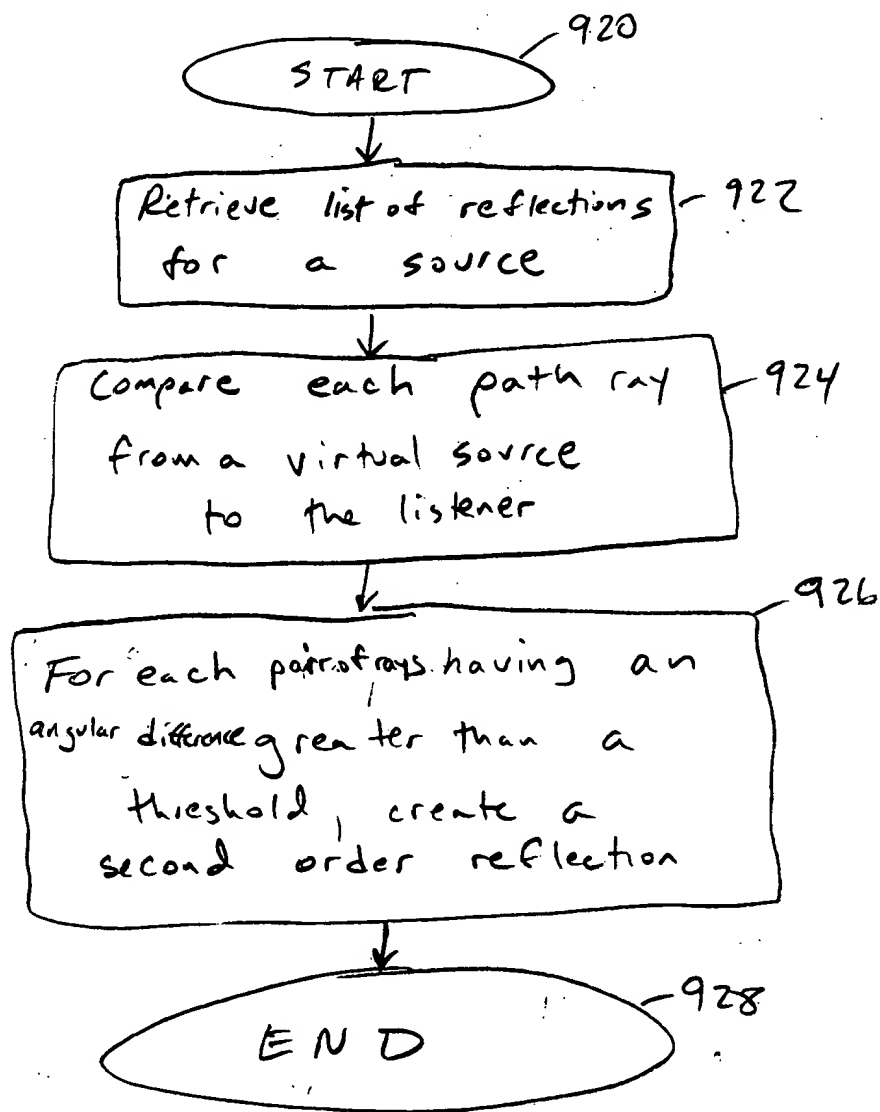 920
START
922
Retrieve list of reflections
for a source
924
Compare each path ray
from a virtual source
to the listener
926
For each pair of rays having an
angular difference greater than a
threshold, create a
second order reflection
928
END